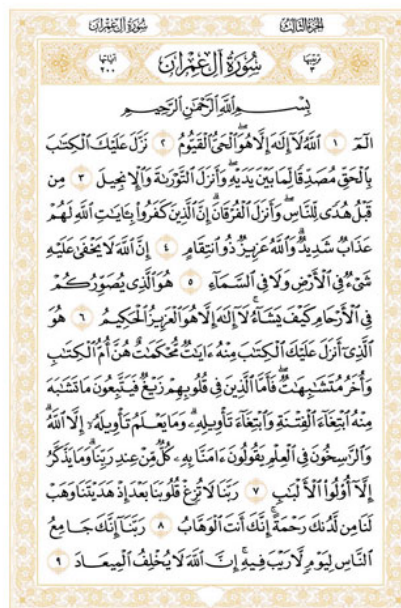 سُورَةُ آلِ عِمْرَان الجُزءُ الثَّالِثُ
آيَاتُهَا ٢٠٠ سُورَةُ آلِ عِمْرَانَ تَرْتِيبُهَا ٣
بِسْمِ ٱللَّهِ ٱلرَّحْمَٰنِ ٱلرَّحِيمِ
الٓمٓ ١ ٱللَّهُ لَآ إِلَٰهَ إِلَّا هُوَ ٱلْحَىُّ ٱلْقَيُّومُ ٢ نَزَّلَ عَلَيْكَ ٱلْكِتَٰبَ
بِٱلْحَقِّ مُصَدِّقًا لِّمَا بَيْنَ يَدَيْهِ وَأَنزَلَ ٱلتَّوْرَىٰةَ وَٱلْإِنجِيلَ ٣ مِن
قَبْلُ هُدًى لِّلنَّاسِ وَأَنزَلَ ٱلْفُرْقَانَ إِنَّ ٱلَّذِينَ كَفَرُوا۟ بِـَٔايَٰتِ ٱللَّهِ لَهُمْ
عَذَابٌ شَدِيدٌ وَٱللَّهُ عَزِيزٌ ذُو ٱنتِقَامٍ ٤ إِنَّ ٱللَّهَ لَا يَخْفَىٰ عَلَيْهِ
شَىْءٌ فِى ٱلْأَرْضِ وَلَا فِى ٱلسَّمَآءِ ٥ هُوَ ٱلَّذِى يُصَوِّرُكُمْ
فِى ٱلْأَرْحَامِ كَيْفَ يَشَآءُ لَآ إِلَٰهَ إِلَّا هُوَ ٱلْعَزِيزُ ٱلْحَكِيمُ ٦ هُوَ
ٱلَّذِىٓ أَنزَلَ عَلَيْكَ ٱلْكِتَٰبَ مِنْهُ ءَايَٰتٌ مُّحْكَمَٰتٌ هُنَّ أُمُّ ٱلْكِتَٰبِ
وَأُخَرُ مُتَشَٰبِهَٰتٌ فَأَمَّا ٱلَّذِينَ فِى قُلُوبِهِمْ زَيْغٌ فَيَتَّبِعُونَ مَا تَشَٰبَهَ
مِنْهُ ٱبْتِغَآءَ ٱلْفِتْنَةِ وَٱبْتِغَآءَ تَأْوِيلِهِۦ وَمَا يَعْلَمُ تَأْوِيلَهُۥٓ إِلَّا ٱللَّهُ
وَٱلرَّٰسِخُونَ فِى ٱلْعِلْمِ يَقُولُونَ ءَامَنَّا بِهِۦ كُلٌّ مِّنْ عِندِ رَبِّنَا وَمَا يَذَّكَّرُ
إِلَّآ أُو۟لُوا۟ ٱلْأَلْبَٰبِ ٧ رَبَّنَا لَا تُزِغْ قُلُوبَنَا بَعْدَ إِذْ هَدَيْتَنَا وَهَبْ
لَنَا مِن لَّدُنكَ رَحْمَةً إِنَّكَ أَنتَ ٱلْوَهَّابُ ٨ رَبَّنَآ إِنَّكَ جَامِعُ
ٱلنَّاسِ لِيَوْمٍ لَّا رَيْبَ فِيهِ إِنَّ ٱللَّهَ لَا يُخْلِفُ ٱلْمِيعَادَ ٩